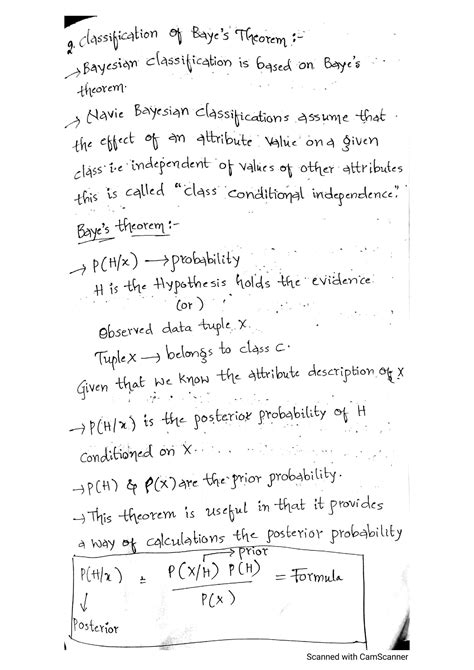 2. Classification of Baye's Theorem :-
→ Bayesian classification is based on Baye's
theorem.
→ Navie Bayesian classifications assume that
the effect of an attribute value on a given
class i.e independent of values of other attributes
this is called "class conditional independence."
Baye's theorem :-
→ P(H/x) → probability
H is the Hypothesis holds the evidence
(or)
Observed data tuple X.
Tuple x → belongs to class C.
Given that we know the attribute description of X
→ P(H/x) is the posterior probability of H
conditioned on X.
→ P(H) & P(X) are the prior probability.
→ This theorem is useful in that it provides
a way of calculations the posterior probability
→ prior
P(H/x) = P(X/H) P(H) / P(X) = Formula
↓
Posterior
Scanned with CamScanner